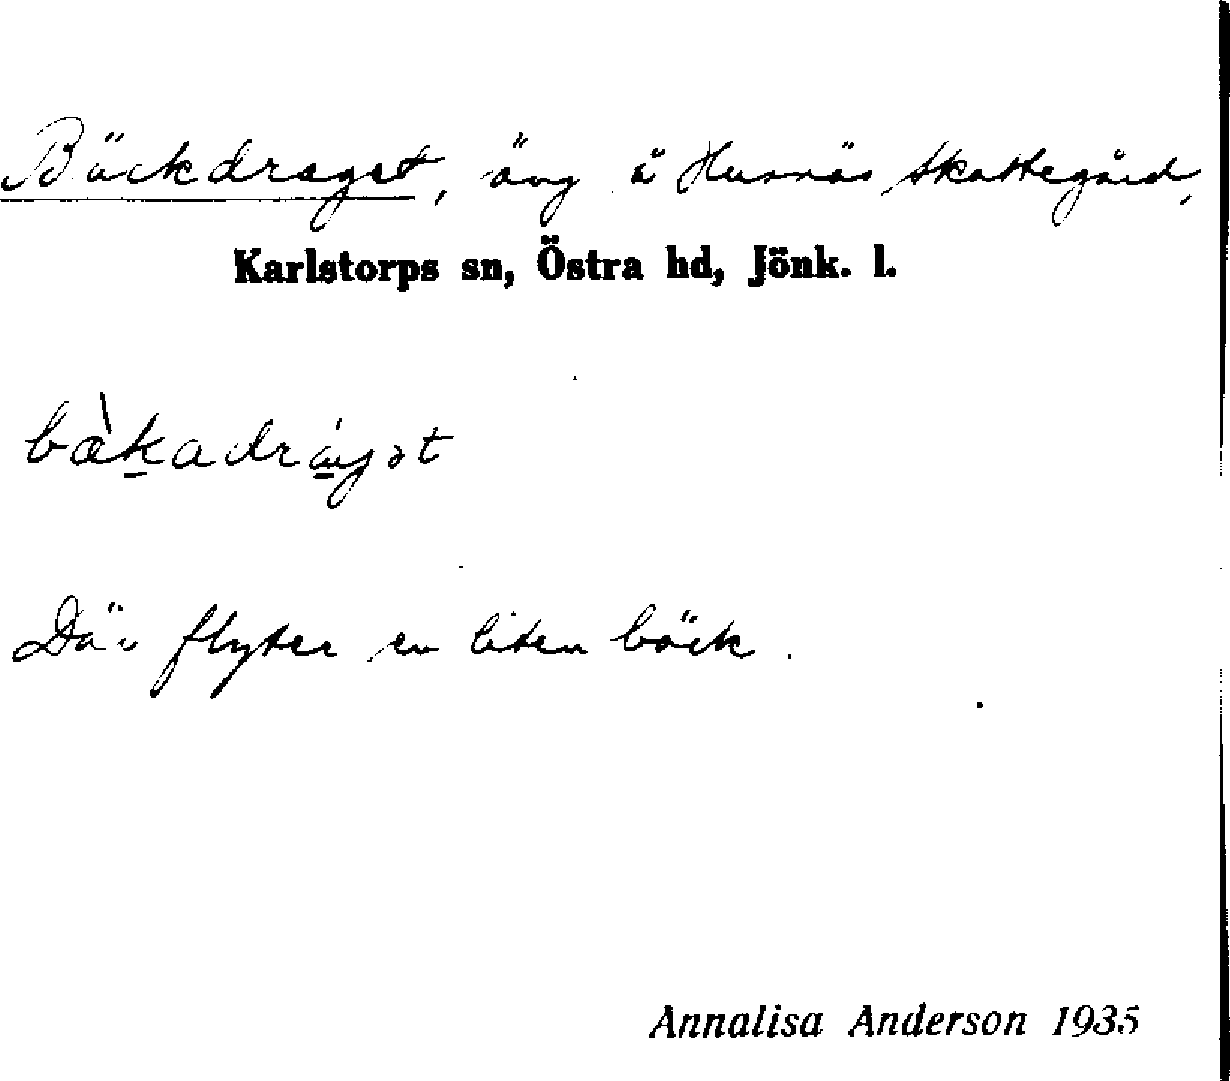 Bäckdraget, äng å Husnäs Skattegård,
Karlstorps sn, Östra hd, Jönk. l.
bæ̀kadrágət
Där flyter en liten bäck.
Annalisa Anderson 1935